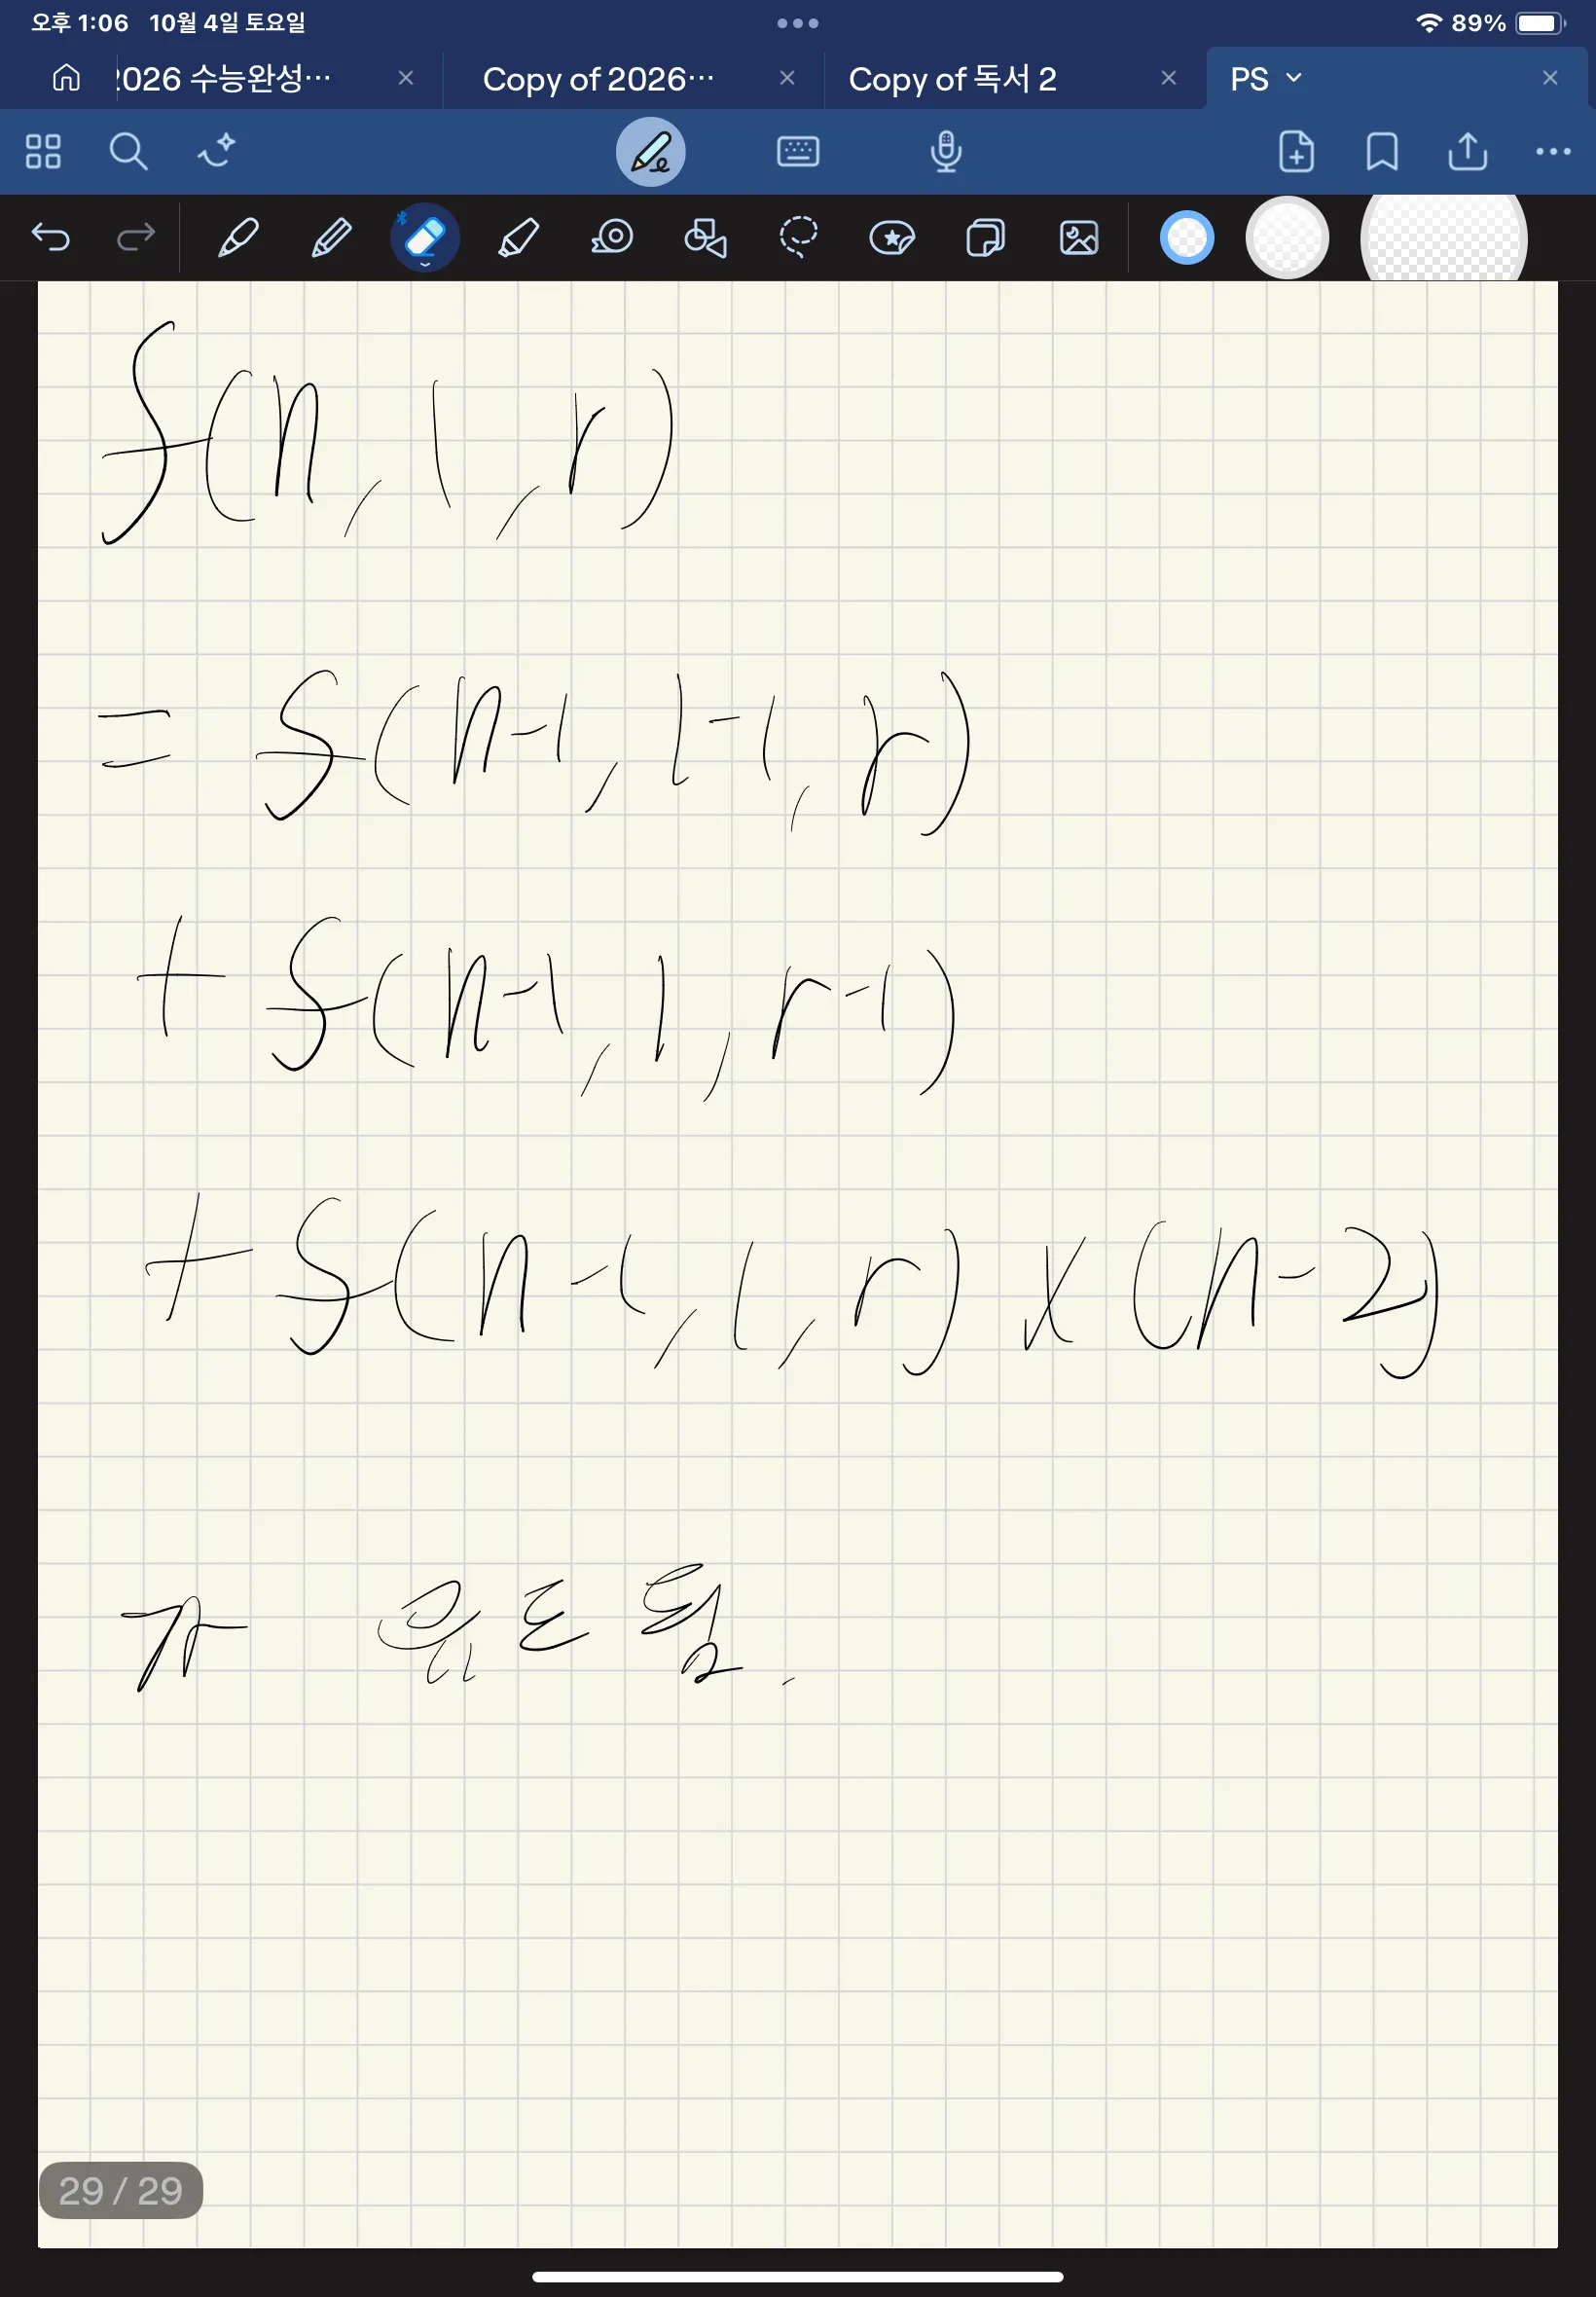 오후 1:06 10월 4일 토요일
89%
2026 수능완성…
Copy of 2026…
Copy of 독서 2
PS
f(n, l, r)
= f(n-1, l-1, r)
+ f(n-1, l, r-1)
+ f(n-1, l, r) x (n-2)
29 / 29